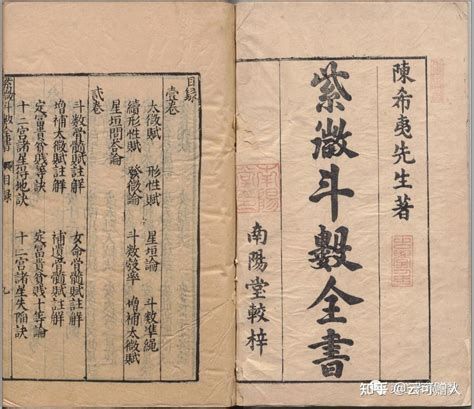 陳希夷先生著
紫微斗數全書
南陽堂較梓
目錄
壹卷
太微賦 形性賦 星垣論 斗數準繩
斗數發率 增補太微賦
星垣問答論
貳卷
斗數骨髓賦註解 女命骨髓賦註解
增補太微賦註解
定富貴貧賤等訣 定富貴貧賤十等論
十二宮諸星得地訣 十二宮諸星失陷訣
目錄
知乎